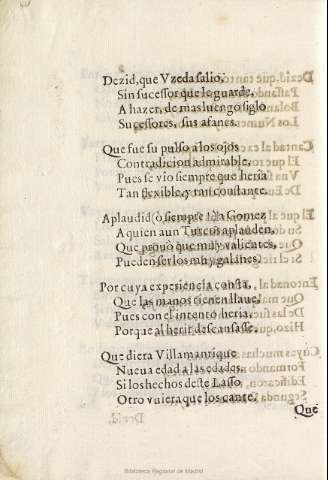 Dezid, que Vzeda salio,
Sin sucessor que le guarde,
A hazer, de mas luengo siglo
Sucessores, sus afanes.
Que fue su pulso a los ojos
Contradicion admirable,
Pues se vio siempre que heria
Tan flexible, y tan constante.
Aplaudid (ò siempre!) la Gomez
A quien aun Tuscos aplauden,
Que prouò que muy valientes,
Pueden ser los muy galanes.
Por cuya experiencia consta,
Que las manos tienen llaue,
Pues con el intento heria,
Porque al herir descansasse.
Que diera Villamanrique
Nueua edad a las edades,
Si los hechos deste Lasso
Otro vuiera que los cante.
Que
Biblioteca Regional de Madrid